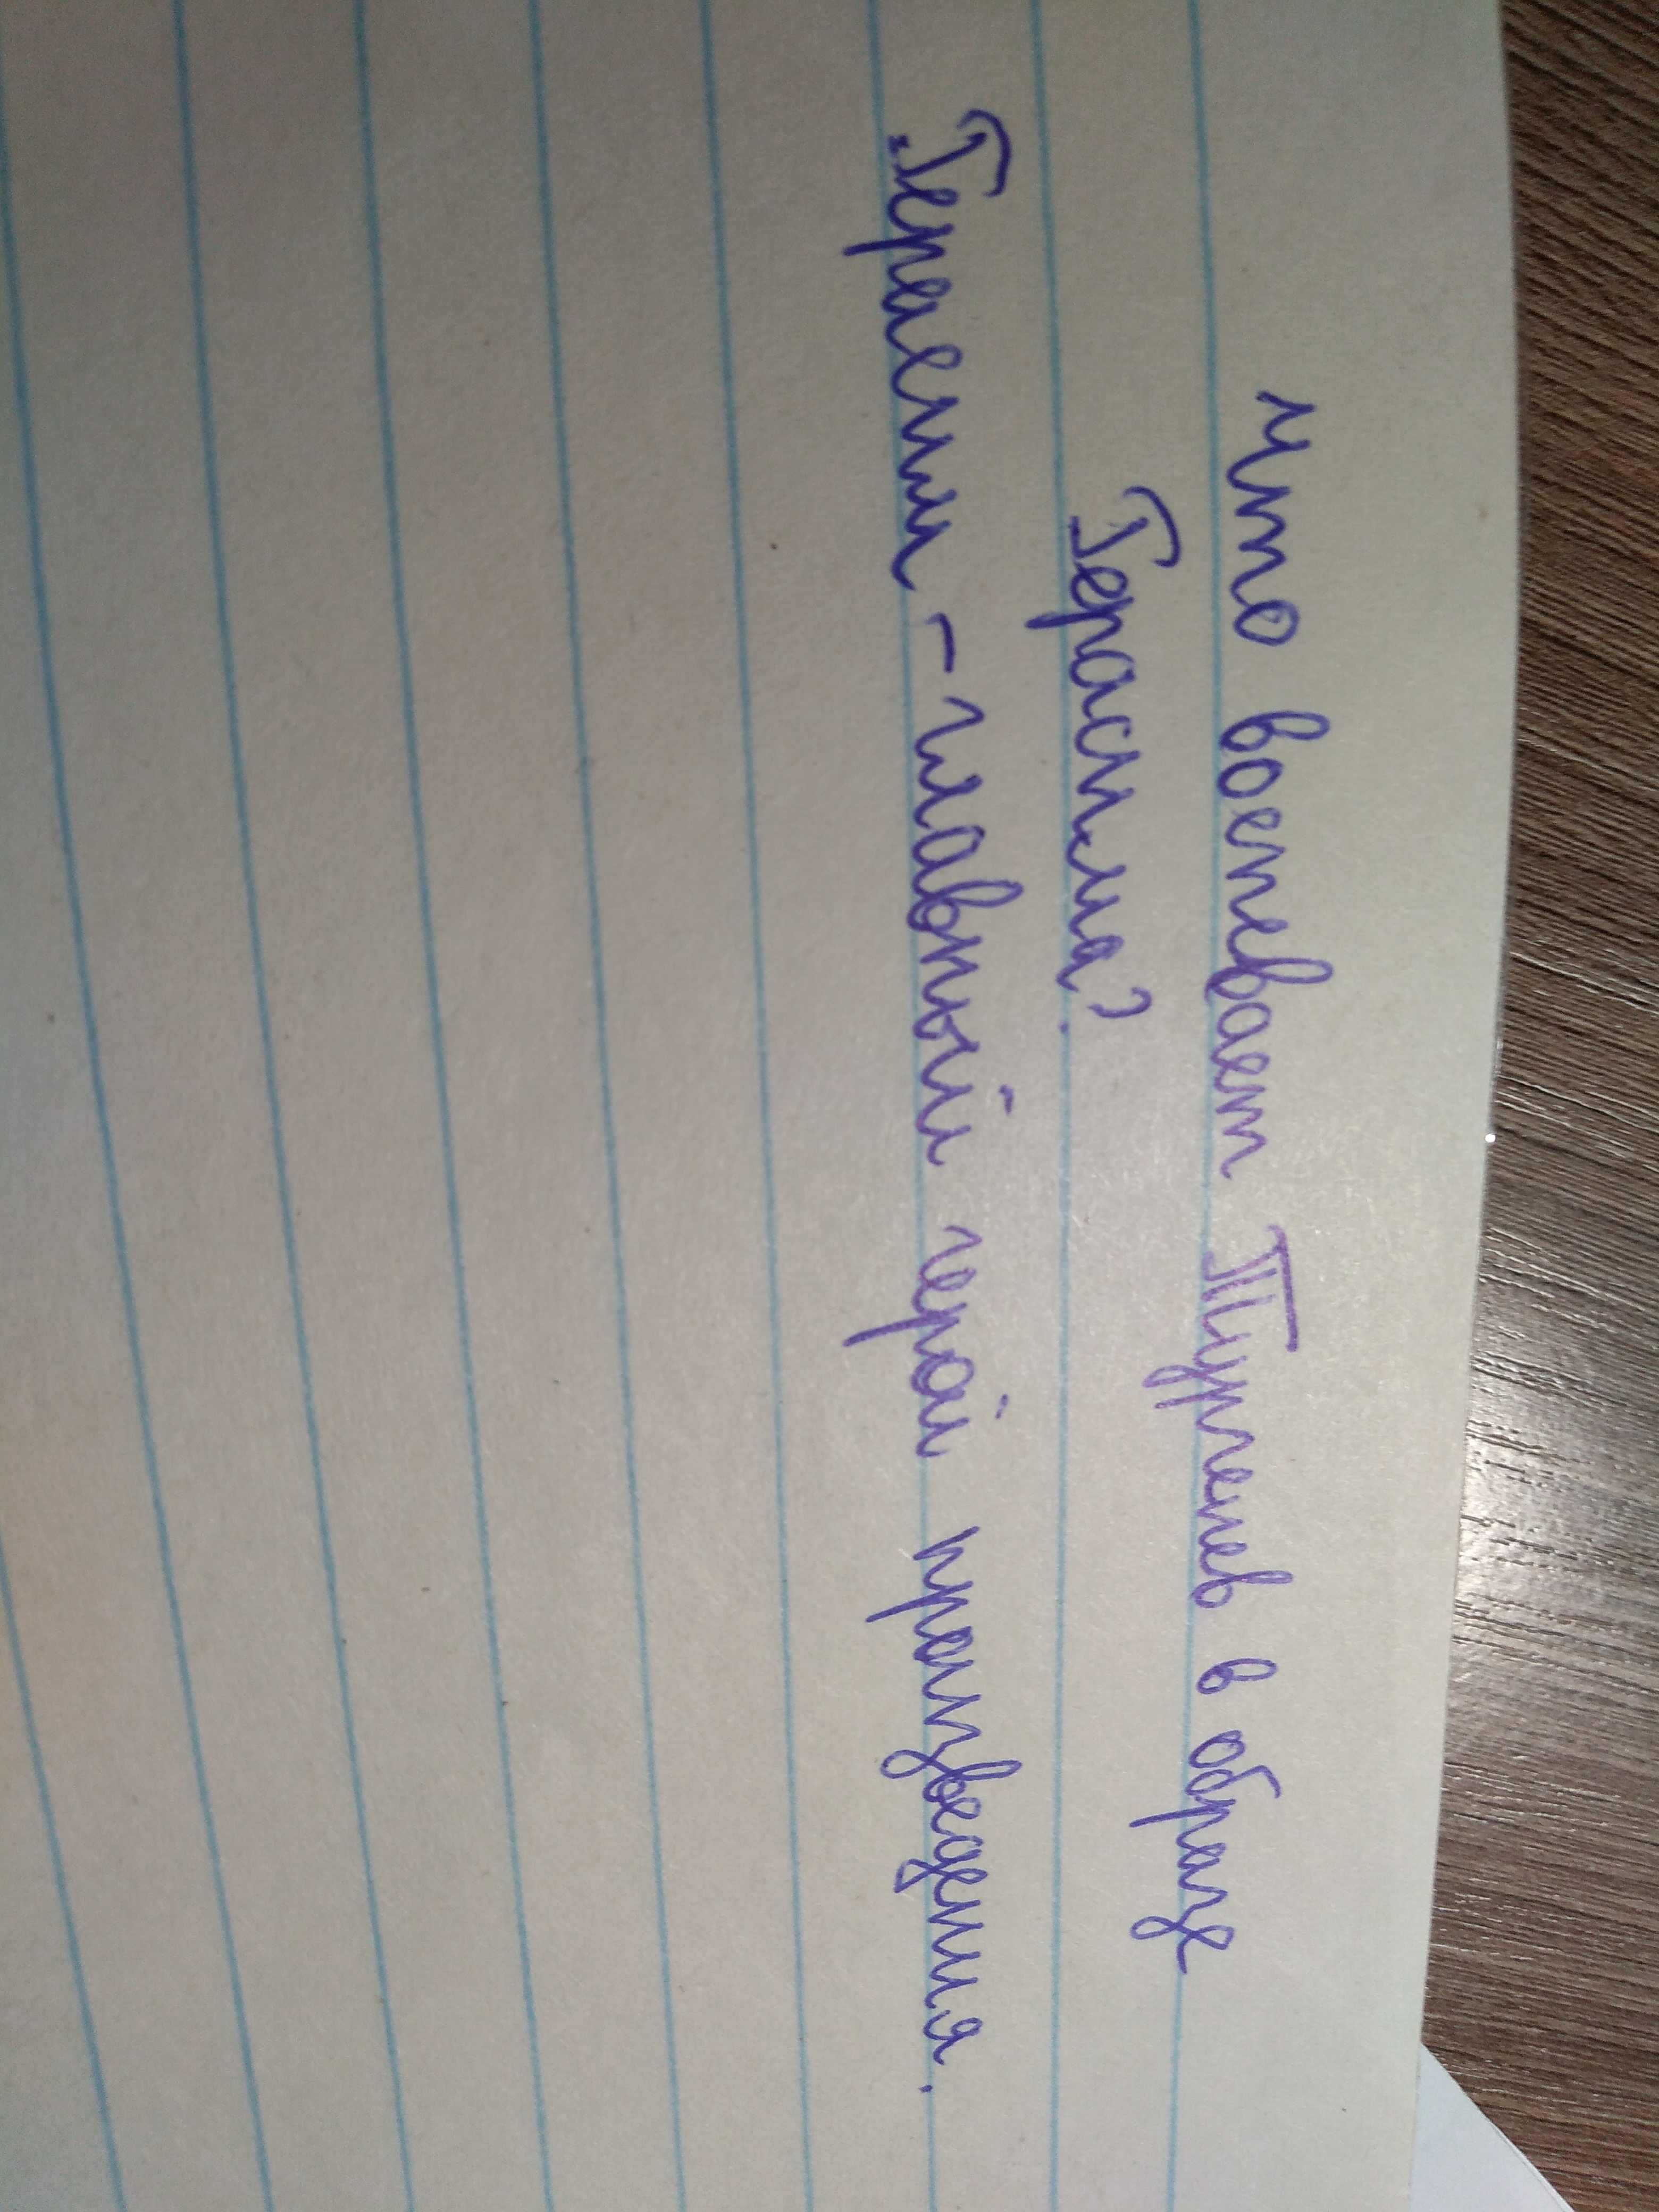 Что воспевает Тургенев в образе
Герасима?
Герасим - главный герой произведения.